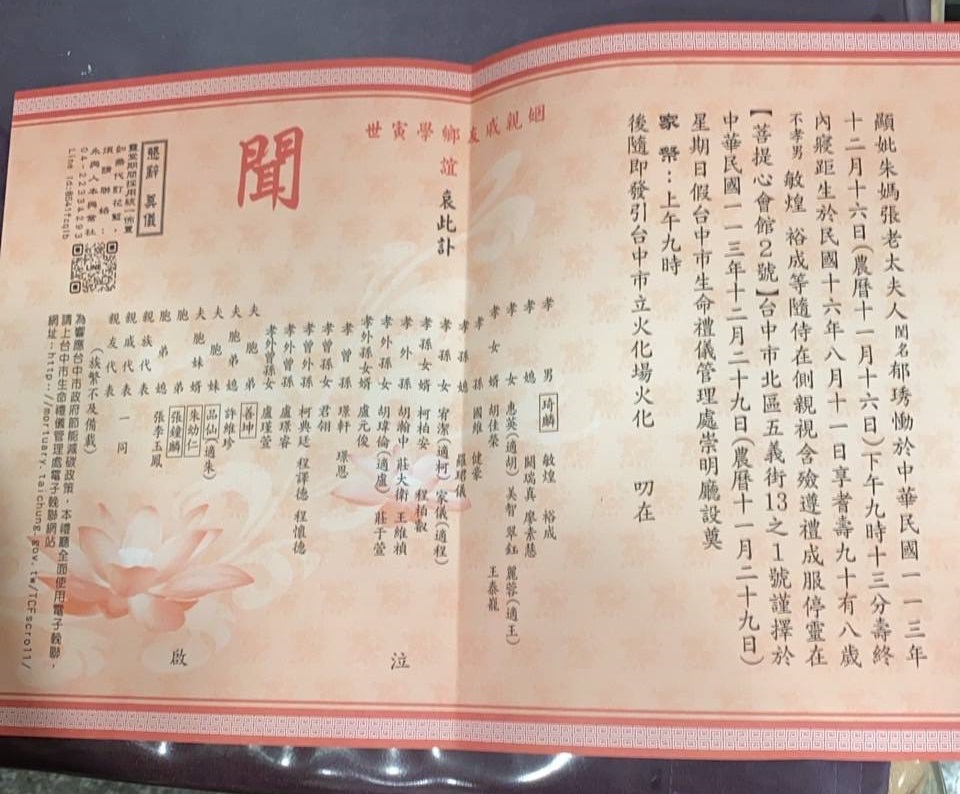 顯妣朱媽張老太夫人閨名郁琇慟於中華民國一一三年
十二月十六日(農曆十一月十六日)下午九時十三分壽終
內寢距生於民國十六年八月十一日享耆壽九十有八歲
不孝男 敏煌 裕成等隨侍在側親視含殮遵禮成服停靈在
【菩提心會館2號】台中市北區五義街13之1號謹擇於
中華民國一一三年十二月二十九日(農曆十一月二十九日)
星期日假台中市生命禮儀管理處崇明廳設奠
家奠:上午九時
後隨即發引台中市立火化場火化 叨在
姻親戚友鄉學寅世
誼 哀此訃
聞
孝男 琦麟 敏煌 裕成
孝媳 關瑞真 廖素慧
孝女 惠英(適胡) 美智 翠鈺 麗蓉(適王)
孝女婿 胡佳榮 王泰巃
孝孫 國維 健豪
孝孫媳 羅珺儀
孝孫女 宥潔(適柯) 家儀(適程)
孝孫女婿 柯柏安 程柏叡
孝外孫 胡瀚中 莊大衛 王維楨
孝外孫女 胡瑋倫(適盧) 莊于萱
孝外孫女婿 盧元俊
孝曾孫 璟軒 璟恩
孝曾孫女 君翎
孝曾外孫 柯典廷 程譯德 程懷德
孝外曾孫 盧璟睿
孝外曾孫女 盧瑾萱
夫胞弟 善坤
夫胞弟媳 許維珍
夫胞妹 品仙(適朱)
夫胞妹婿 朱幼仁
胞弟 張鐘麟
胞弟媳 張李玉鳳
親族代表
親戚代表 一同
親友代表
(族繁不及備載)
泣
啟
懇辭 奠儀
靈堂期間採用統一佈置
如需代訂花籃,
須請聯絡:
永興人本興業社
04-22334293
為響應台中市政府節能減碳政策,本禮廳全面使用電子輓聯,
請上台中市生命禮儀管理處電子輓聯網站
網址:http://mortuary.taichung.gov.tw/TCFscroll/